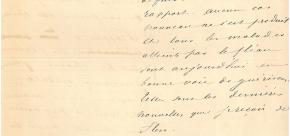 rapport aucun cas
nouveau ne s'est produit
et tous les malades
atteints par le fléau
sont aujourd'hui en
bonne voie de guérison
telles sont les dernières
nouvelles que je reçois de